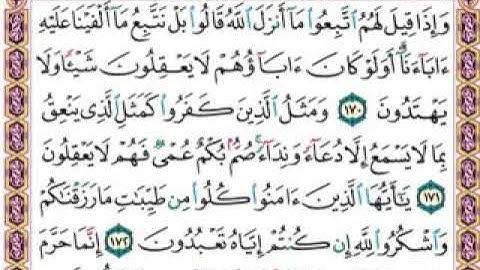 وَإِذَا قِيلَ لَهُمُ ٱتَّبِعُوا۟ مَآ أَنزَلَ ٱللَّهُ قَالُوا۟ بَلْ نَتَّبِعُ مَآ أَلْفَيْنَا عَلَيْهِ
ءَابَآءَنَآ ۗ أَوَلَوْ كَانَ ءَابَآؤُهُمْ لَا يَعْقِلُونَ شَيْـًٔا وَلَا
يَهْتَدُونَ ١٧٠ وَمَثَلُ ٱلَّذِينَ كَفَرُوا۟ كَمَثَلِ ٱلَّذِى يَنْعِقُ
بِمَا لَا يَسْمَعُ إِلَّا دُعَآءً وَنِدَآءً ۚ صُمٌّۢ بُكْمٌ عُمْىٌ فَهُمْ لَا يَعْقِلُونَ
١٧١ يَـٰٓأَيُّهَا ٱلَّذِينَ ءَامَنُوا۟ كُلُوا۟ مِن طَيِّبَـٰتِ مَا رَزَقْنَـٰكُمْ
وَٱشْكُرُوا۟ لِلَّهِ إِن كُنتُمْ إِيَّاهُ تَعْبُدُونَ ١٧٢ إِنَّمَا حَرَّمَ